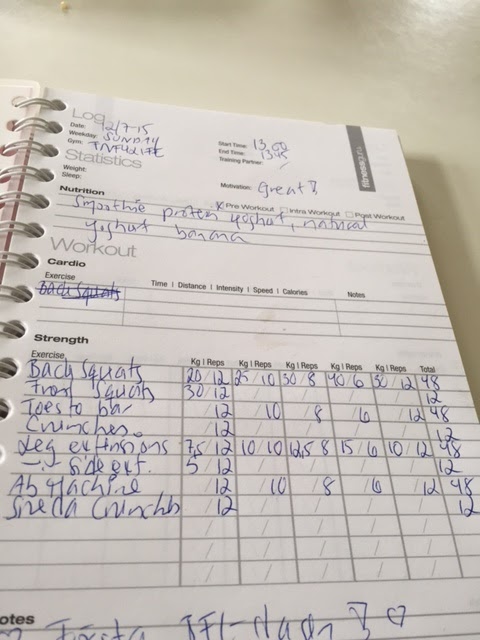 Log
Date: 12/7-15
Weekday: SUNDAY
Gym:
Start Time: 13,00
End Time: 13:45
Training Partner: -
fitnessguru
Statistics
Weight:
Sleep:
Motivation: Great!
Nutrition
x Pre Workout Intra Workout Post Workout
Smoothie protein yoghurt, natural
yoghurt banana
Workout
Cardio
Exercise Time | Distance | Intensity | Speed | Calories Notes
Back Squats
Strength
Exercise Kg | Reps Kg | Reps Kg | Reps Kg | Reps Kg | Reps Total
Back Squats 20/12 25/10 30/8 40/6 30/12 48
Front Squats 30/12 12
Toes to bar /12 /10 /8 /6 /12 48
Crunches /12 12
Leg extensions 7,5/12 10/10 12,5/8 15/6 10/12 48
-"- side ext. 5/12 12
Ab Machine /12 /10 /8 /6 /12 48
Sneda Crunch /12 12
otes
Första